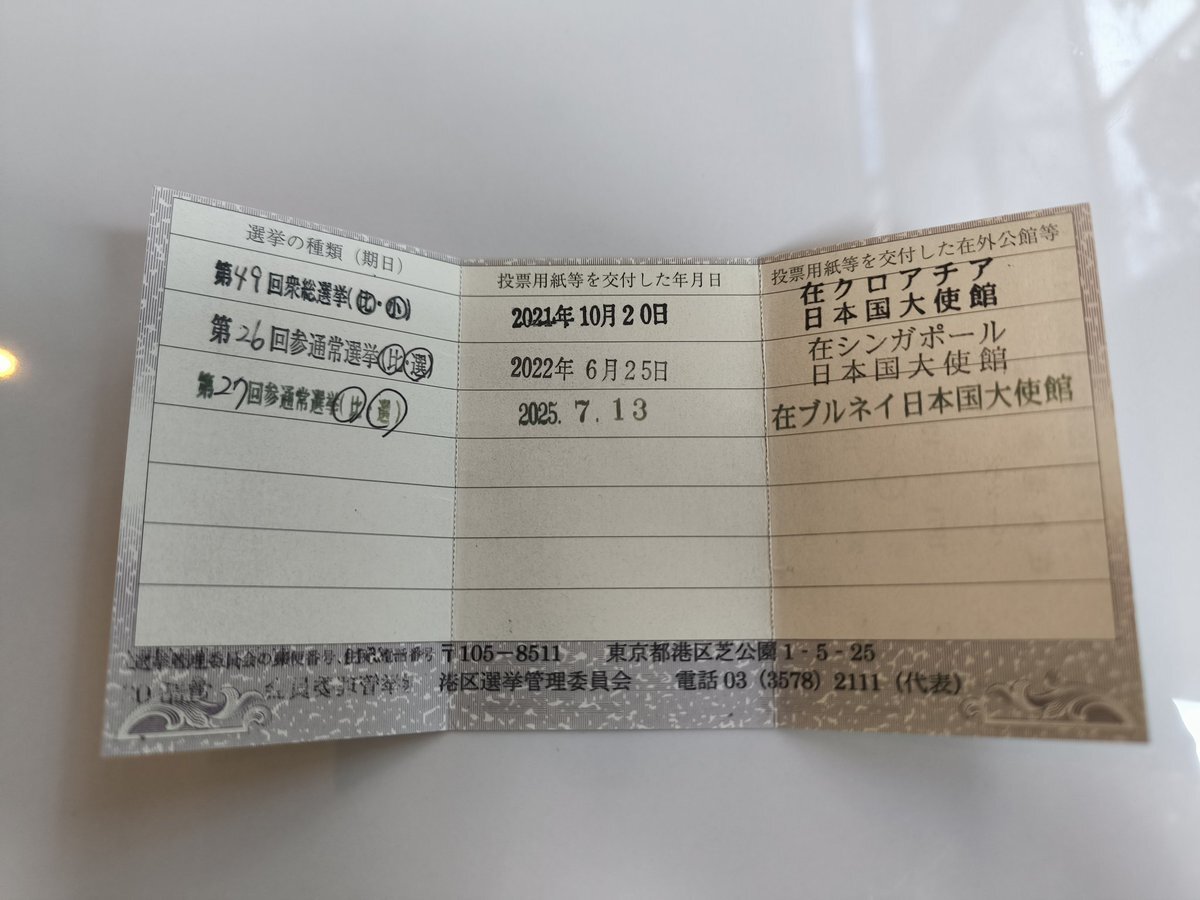 選挙の種類（期日）
投票用紙等を交付した年月日
投票用紙等を交付した在外公館等
第49回衆総選挙(比・小)
2021年10月20日
在クロアチア
日本国大使館
第26回参通常選挙(比・選)
2022年 6月25日
在シンガポール
日本国大使館
第27回参通常選挙(比・選)
2025. 7. 13
在ブルネイ日本国大使館
選挙管理委員会の郵便番号、住所、電話番号
〒105-8511 東京都港区芝公園1-5-25
港区選挙管理委員会 電話03（3578）2111（代表）